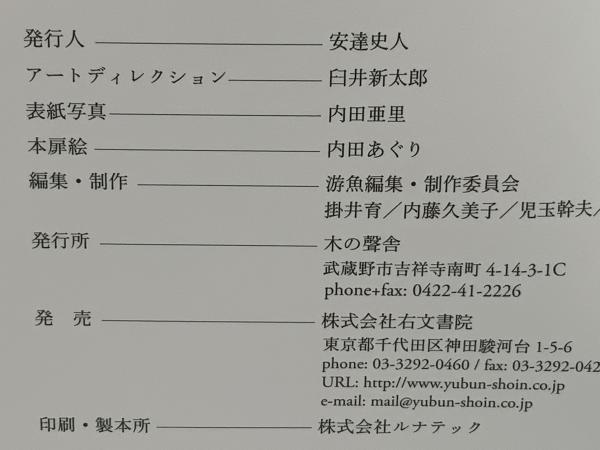 発行人 安達史人
アートディレクション 臼井新太郎
表紙写真 内田亜里
本扉絵 内田あぐり
編集・制作 游魚編集・制作委員会
掛井育／内藤久美子／児玉幹夫／
発行所 木の聲舎
武蔵野市吉祥寺南町 4-14-3-1C
phone+fax: 0422-41-2226
発　売 株式会社右文書院
東京都千代田区神田駿河台 1-5-6
phone: 03-3292-0460 / fax: 03-3292-042
URL: http://www.yubun-shoin.co.jp
e-mail: mail@yubun-shoin.co.jp
印刷・製本所 株式会社ルナテック